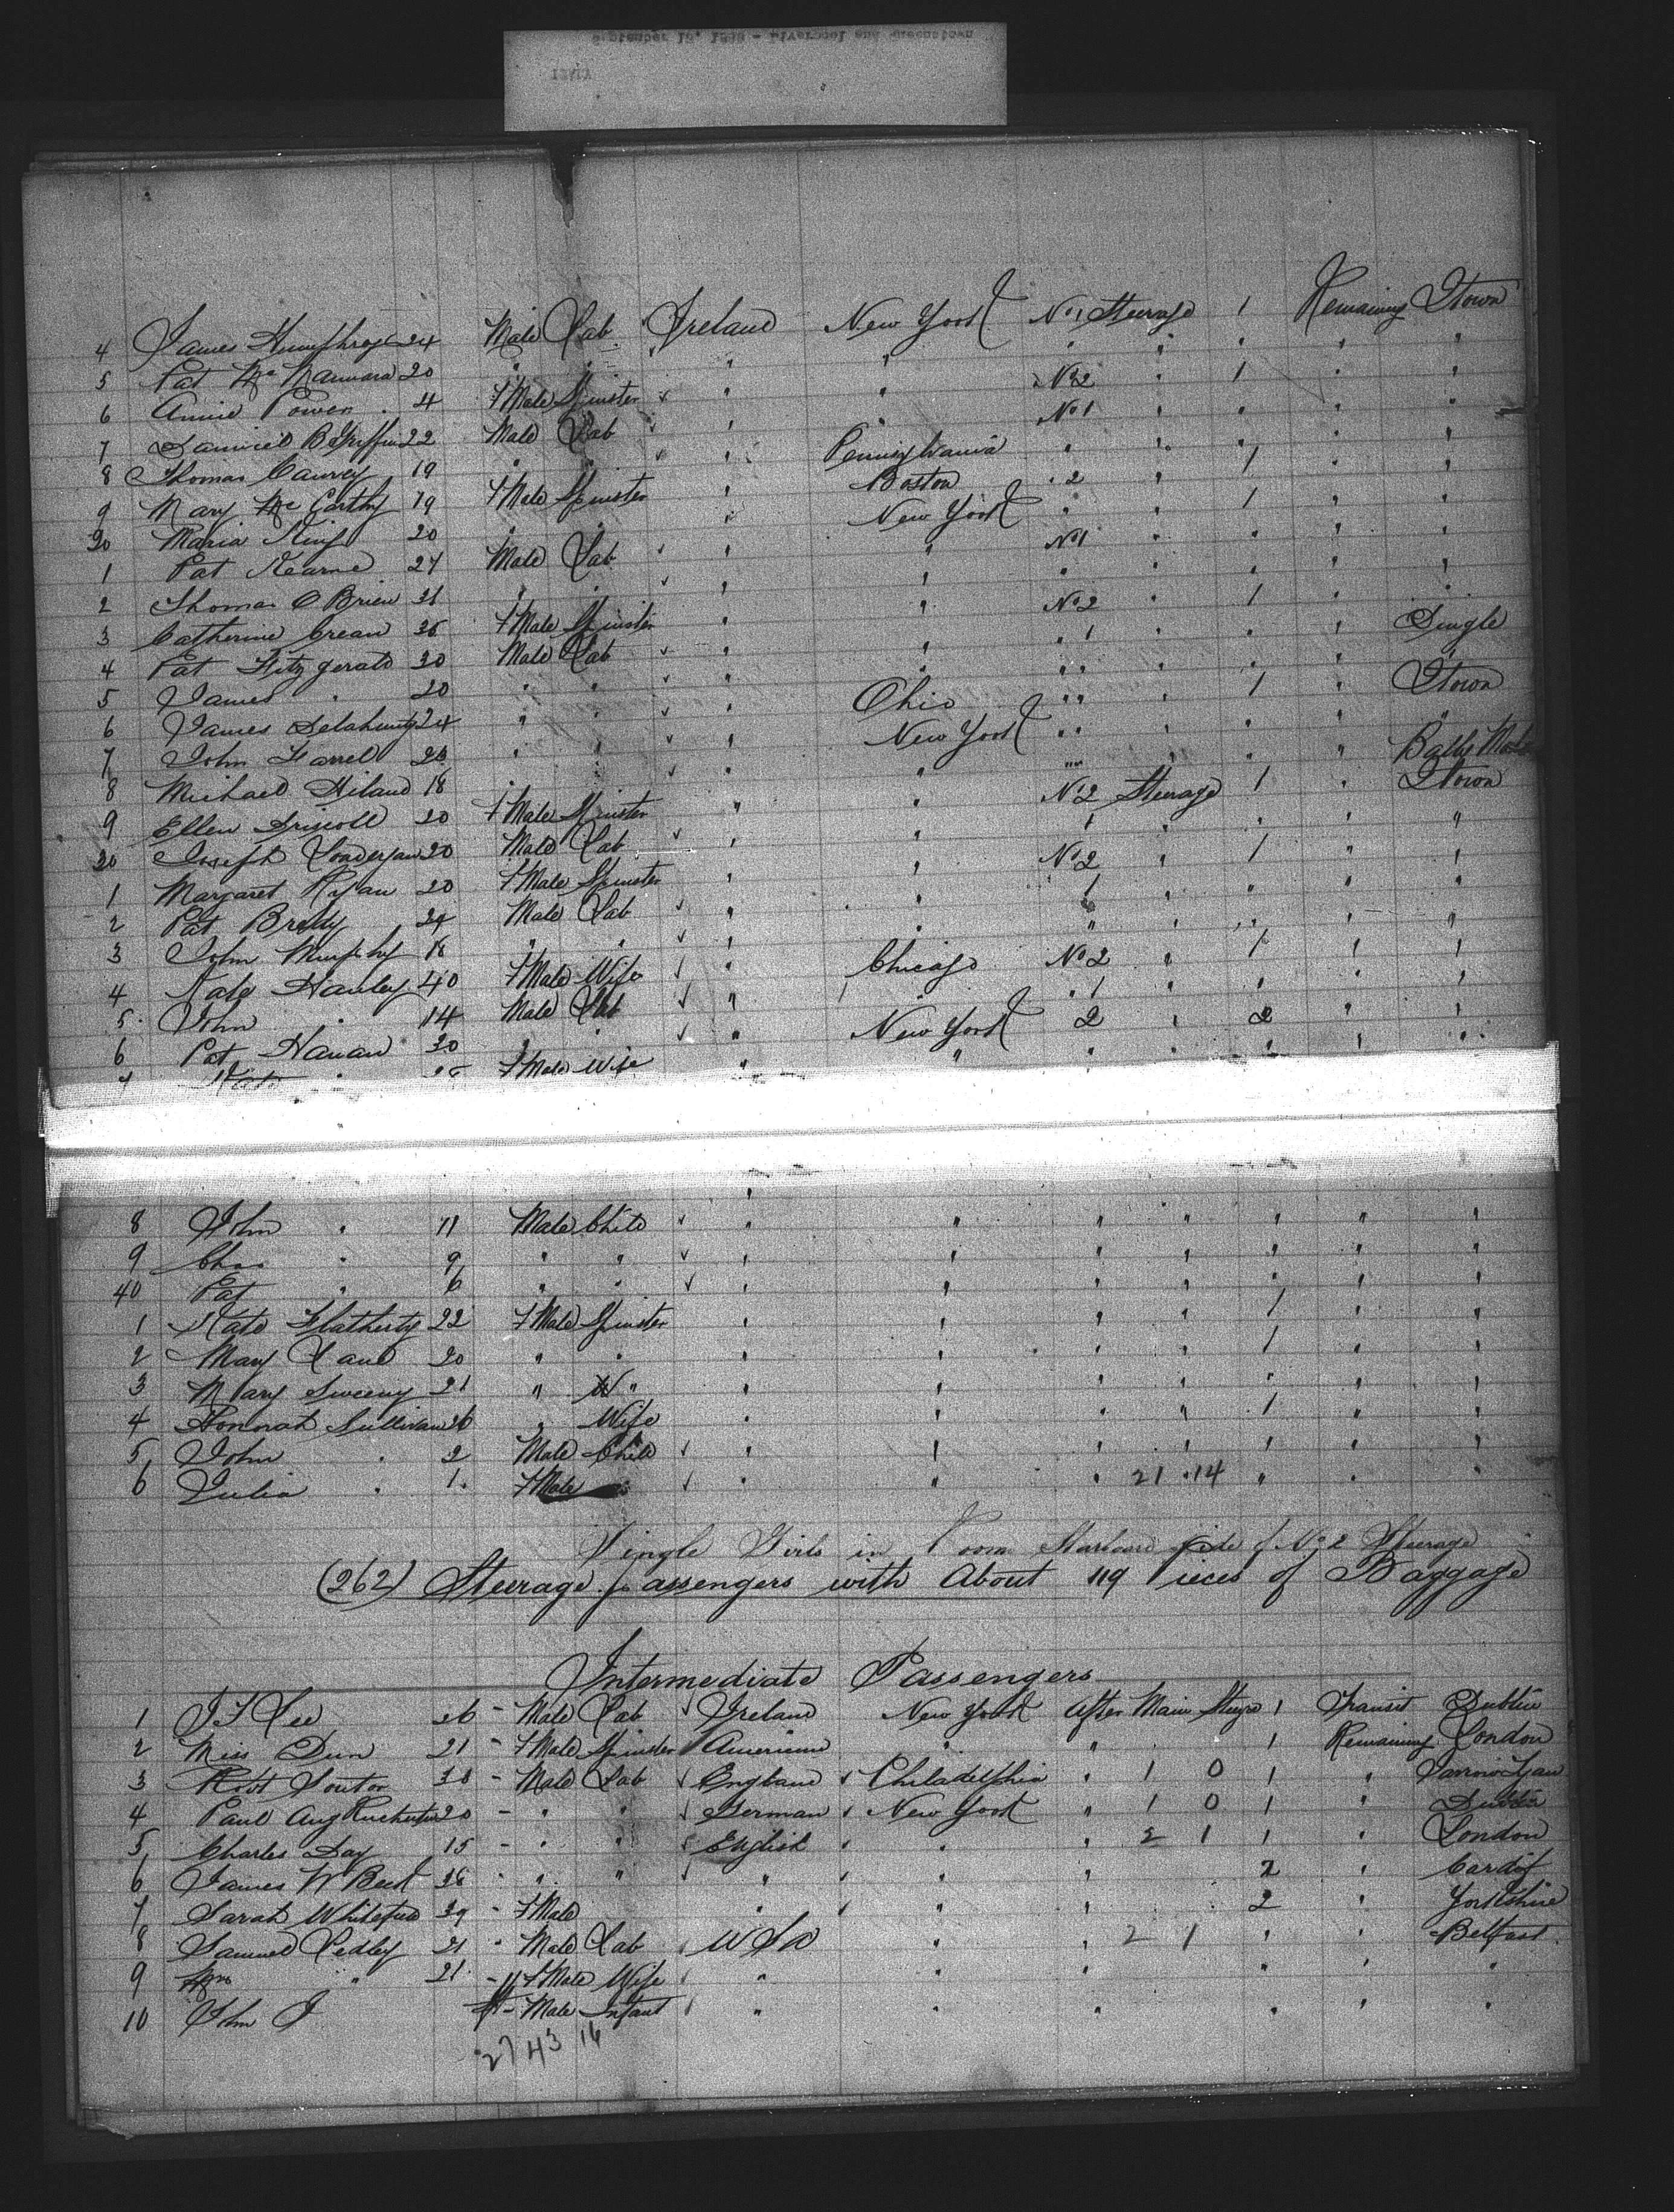 4 James Humphreys 24 Male Lab Ireland New York No 1 Steerage 1 Remaining Qtown
5 Pat McNamara 20 " " " " " " " " "
6 Annie Power 4 FMale Spinster " " No 2 " 1 " "
7 B Griffin 22 Male Lab " " No 1 " " " "
8 Thomas 19 " " " Pennsylvania " " " " "
9 Mary McCarthy 19 FMale Spinster " Boston 2 " 1 " "
30 Maria King 20 " " " New York " " 1 " "
1 Pat Kearne 24 Male Lab " " No 1 " " " "
2 Thomas O Brien 31 " " " " " " " " "
3 Catherine Crean 36 FMale Spinster " " No 2 " 1 " "
4 Pat Fitzgerald 30 Male Lab " " 1 " " " Dingle
5 James " 20 " " " " " " " " "
6 James Delahunty 24 " " " Ohio " " 1 " Qtown
7 John Farrell " " " New York " " " " "
8 Michael Hiland 18 " " " " " " " "
9 Ellen Driscoll 20 FMale Spinster " " No 2 Steerage 1 " Qtown
30 Joseph 20 Male Lab " " 1 " " " "
1 Margaret Ryan 20 FMale Spinster " " No 2 " 1 " "
2 Pat 24 Male Lab " " 1 " " " "
3 John Murphy 18 " " " " " " " " "
4 Kate Hanley 40 FMale Wife " Chicago No 2 " 1 " "
5 John " 14 Male Lab " " 1 " " " "
6 Pat Hanan 30 " " " New York 2 " 2 " "
7 Kate " FMale Wife " " " " " " "
8 John " 11 Male Child " " " " " " "
9 Chas " 9 " " " " " " " " "
40 Pat " 6 " " " " " " " " "
1 Kate Flatherty 22 FMale Spinster " " " " 1 " "
2 Mary Lane 20 " " " " " " 1 " "
3 Mary Sweeny 21 " " " " " " " " "
4 Honorah Sullivan 26 " Wife " " " " 1 " "
5 John " 2 Male Child " " " " " " "
6 Julia " 1 FMale " " " " 21 14 " " "
Single Girls in Room Starboard side of No 2 Steerage
(262) Steerage Passengers with About 119 Pieces of Baggage
Intermediate Passengers
1 J F Lee 26 - Male Lab Ireland New York After Main 1 Transit Dublin
2 Miss Dun 21 - FMale Spinster American " " 1 Remaining London
3 Robt Soutor 38 - Male Lab England Philadelphia " 1 0 1 "
4 Paul Aug 20 - " " German New York " 1 0 1 " Dublin
5 Charles Day 15 - " " English " " 2 1 1 " London
6 James W 26 - " " " " " 2 " Cardif
7 Sarah 39 - FMale " " " 2 " Yorkshire
8 Samuel Pedley 21 - Male Lab U S A " " 2 1 " " Belfast
9 Mrs " 21 - FMale Wife " " " " "
10 John J - Male Infant " " " " " "
27 43 16